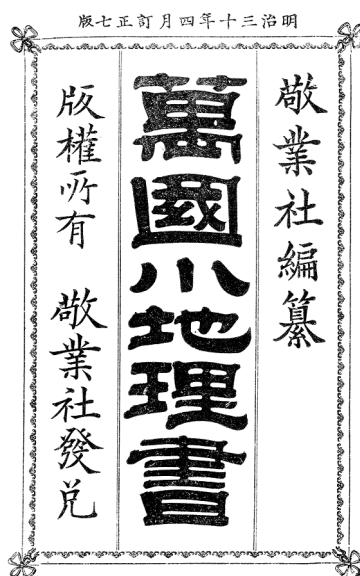 明治三十年四月訂正七版
敬業社編纂
萬國小地理書
版權所有　敬業社發兌